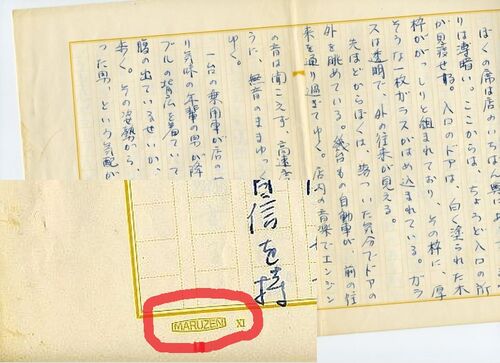 ぼくの席は店のいちばん奥に
りは薄暗い。ここからは、ちょうど入口の所
が見渡せる。入口のドアは、白く塗られた木
枠ががっしりと組まれており、その枠に、厚
そうな一枚ガラスがはめ込まれている。ガラ
スは透明で、外の往来が見える。
先ほどからぼくは、ついた気分でドアの
外を眺めている。幾台もの自動車が、前の往
来を通り過ぎてゆく。店内の音楽でエンジン
の音は聞こえず、高速
うに、無音のままゆっく
ゆく。
一台の乗用車が店の
り気味の年輩の男が降
ブルの背広を着ていて
腹の出ているせいか、
歩く。その姿勢から、
った男、という気配が
自信を持
MARUZEN XI